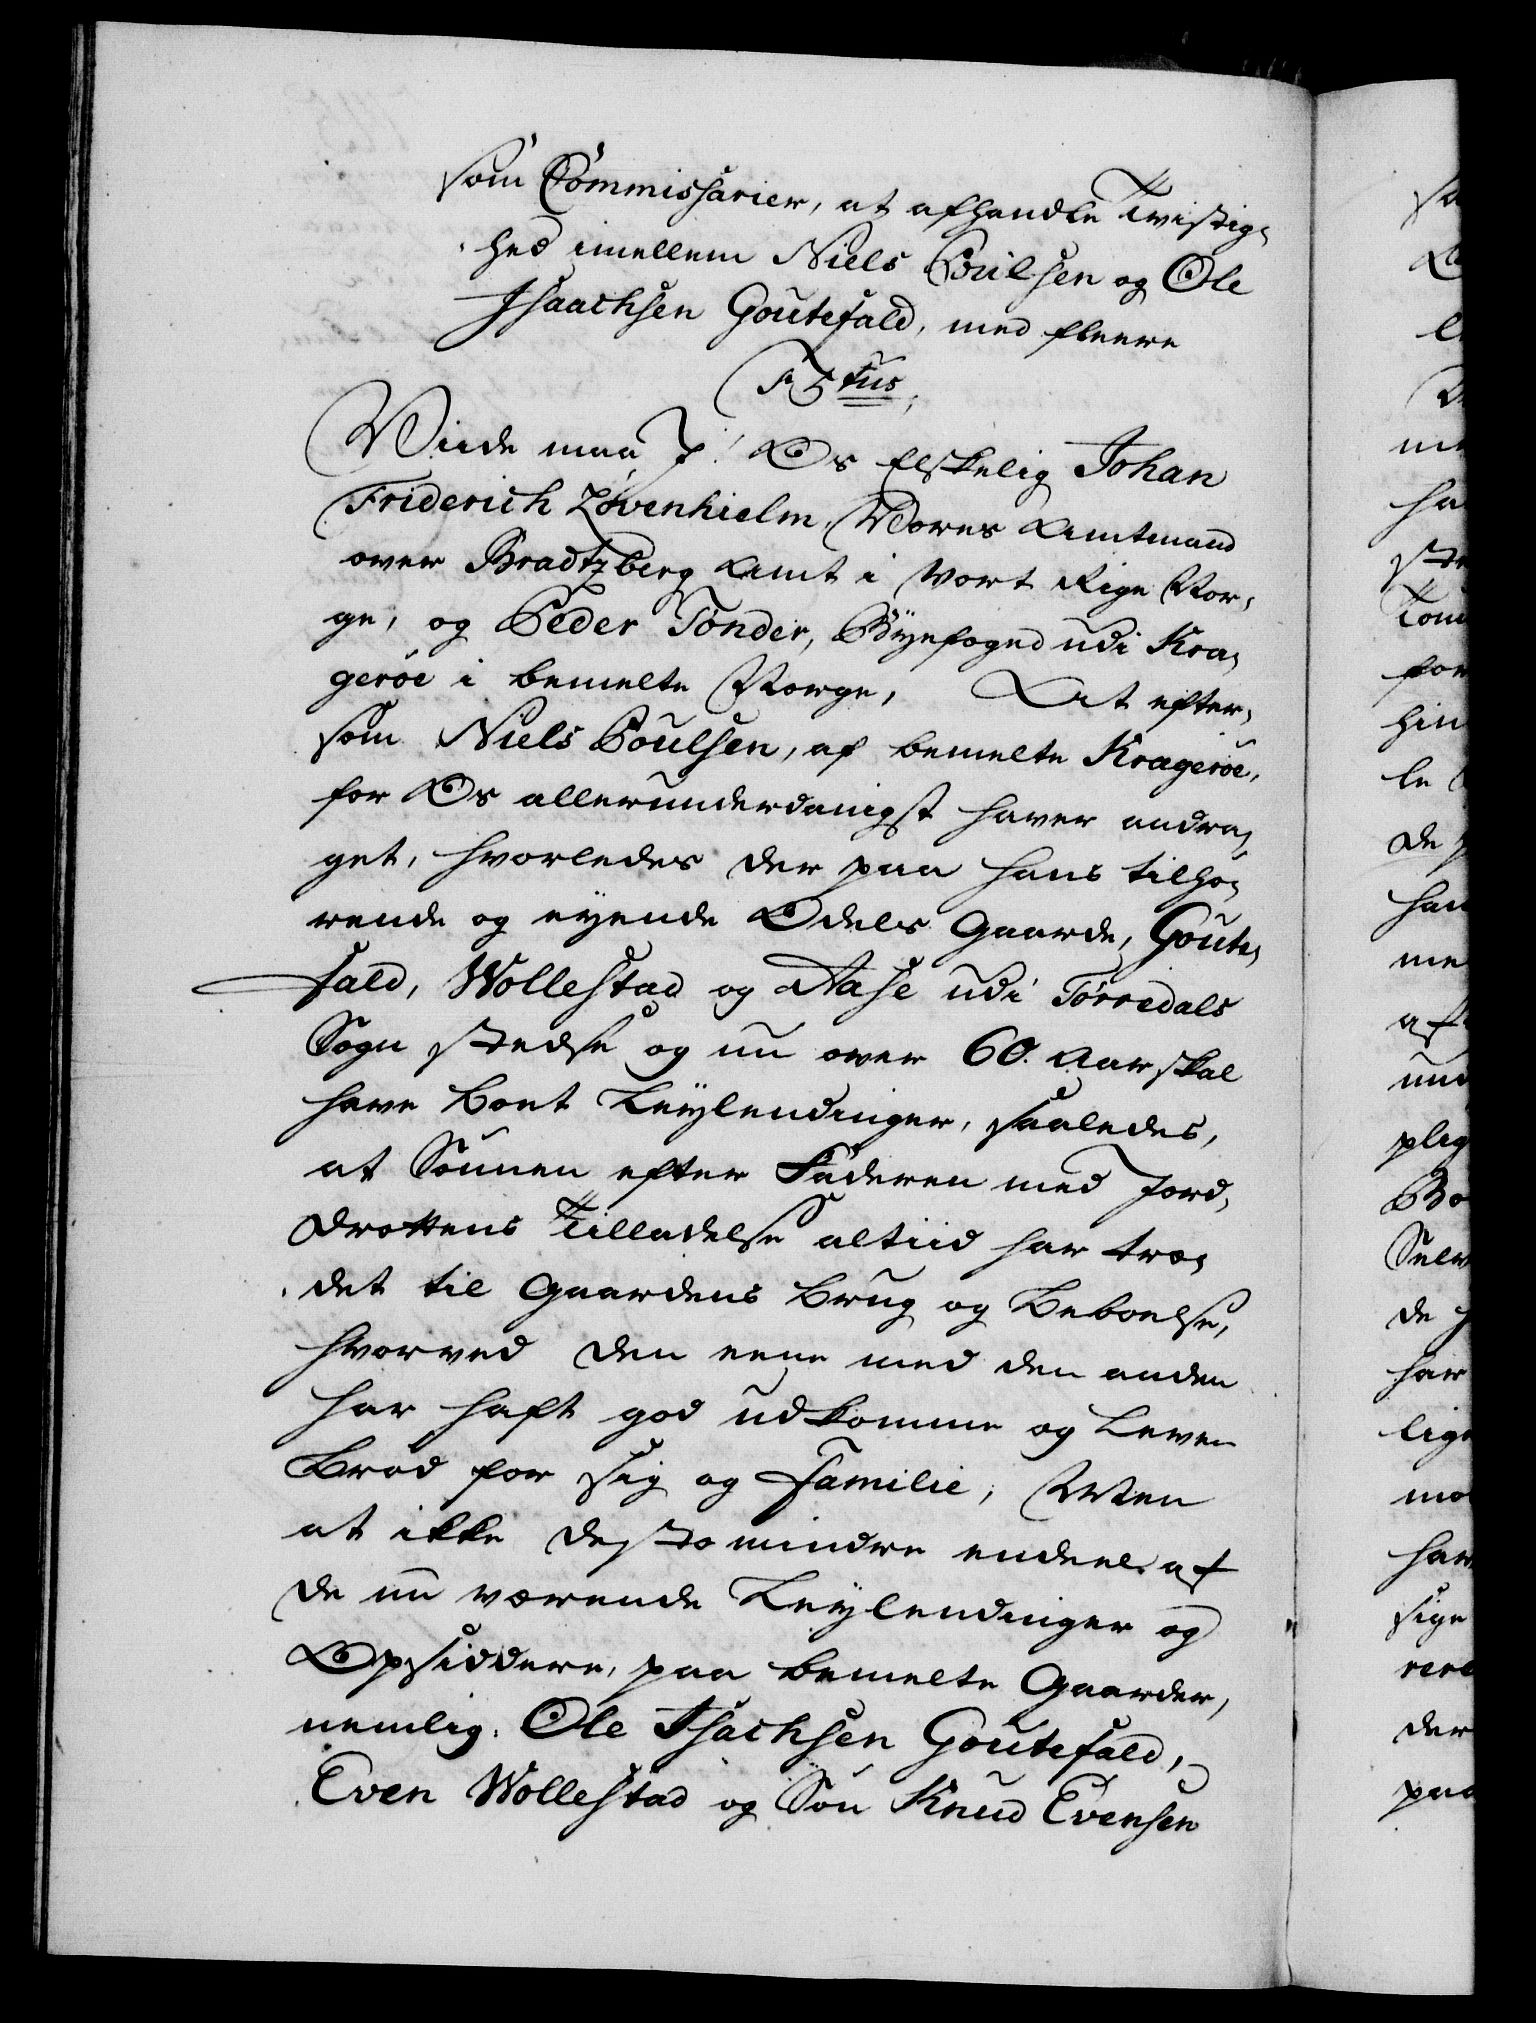 som Commissarier, at afhandle Twistig,
hed imellem Niels Poulsen og Ole
Isaachsen Goutefald, med fleere
F 5tus,
Viide maa I! Os Elskelig Johan
Friderich Lövenhielm, Vores Amtmand
over Bradtzberg Amt i vort Rige Nor,
ge, og Peder Tönder, Byefoged udi Kra,
geröe i bemelte Norge, At efter,
som Niels Poulsen, af bemelte Krageröe,
for Os allerunderdanigst haver andra,
get, hvorledes der paa hans tilhö,
rende og eyende Odels Gaarde, Goute,
fald, Wollestad og Aase udi Törredals
Sogn stedse og nu over 60. Aar skal
have boet Leylendinger, saaledes,
at Sönnen efter Faderen med Jord,
drottens Tilladelse altiid har træ,
det til Gaardens Brug og Beboelse,
hvorved den eene med den anden
har haft god udkomme og Leve
Bröd for sig og Familie, Men
at ikke desto mindre endeel af
de nu værende Leylendinger og
Opsiddere, paa bemelte Gaarder,
nemlig: Ole Isachsen Goutefald,
Even Wollestad og Sön Knud Evensen